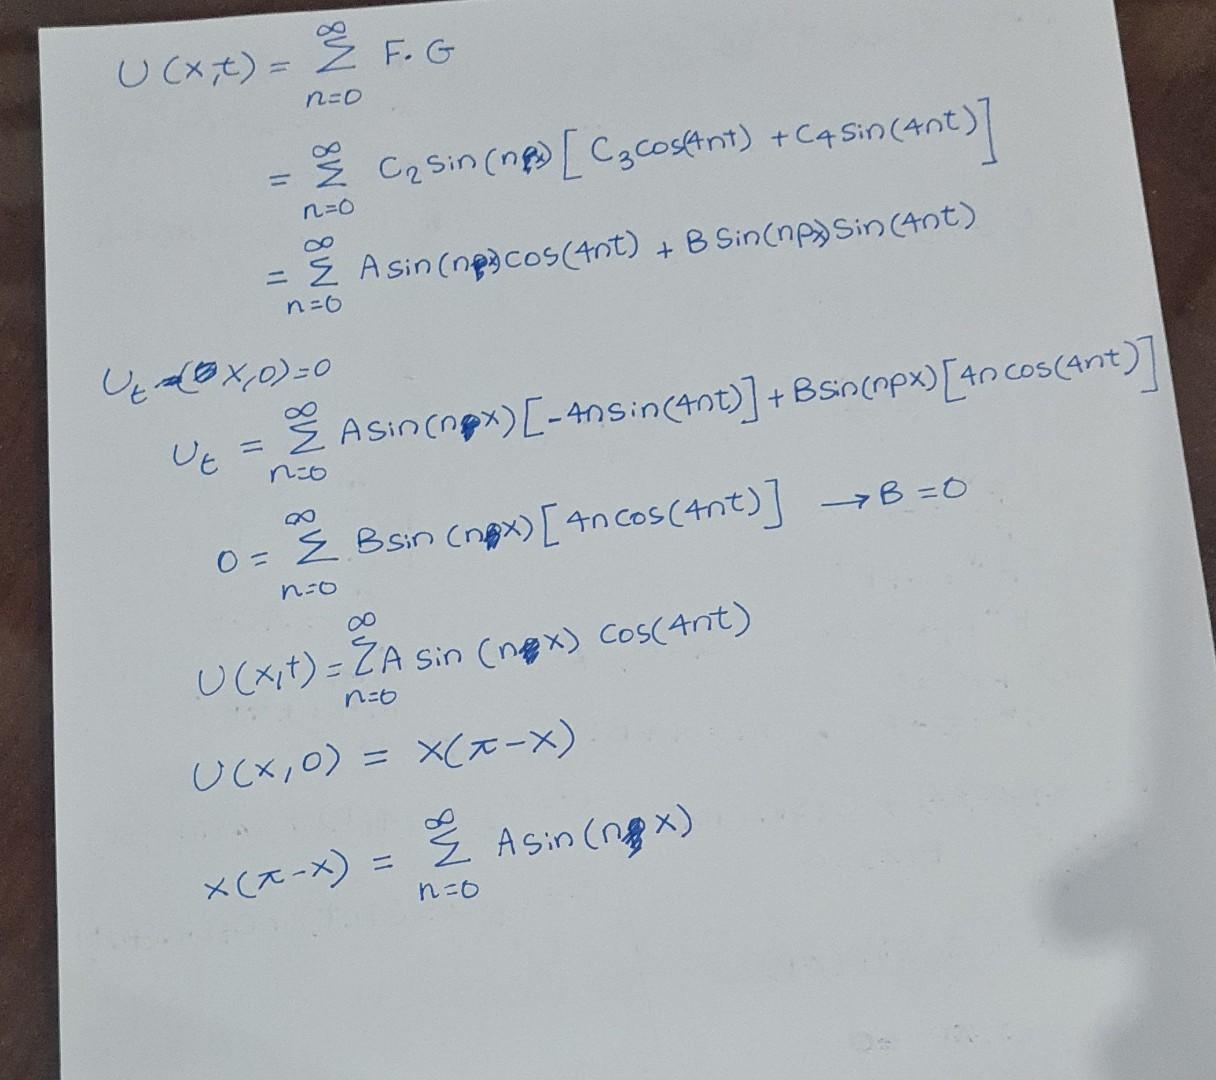 U(x,t) = ∞ Σ n=0 F. G
= ∞ Σ n=0 C₂ sin(nx) [C₃cos(4nt) + C₄ sin(4nt)]
= ∞ Σ n=0 A sin(nx) cos(4nt) + B sin(npx) sin(4nt)
Uₜ (x,0)=0
Uₜ = ∞ Σ n=0 A sin(nx) [-4n sin(4nt)] + B sin(npx) [4n cos(4nt)]
0 = ∞ Σ n=0 B sin(nx) [4n cos(4nt)] → B = 0
U(x,t) = ∞ Σ n=0 A sin(nx) cos(4nt)
U(x,0) = x(π-x)
x(π-x) = ∞ Σ n=0 A sin(nx)